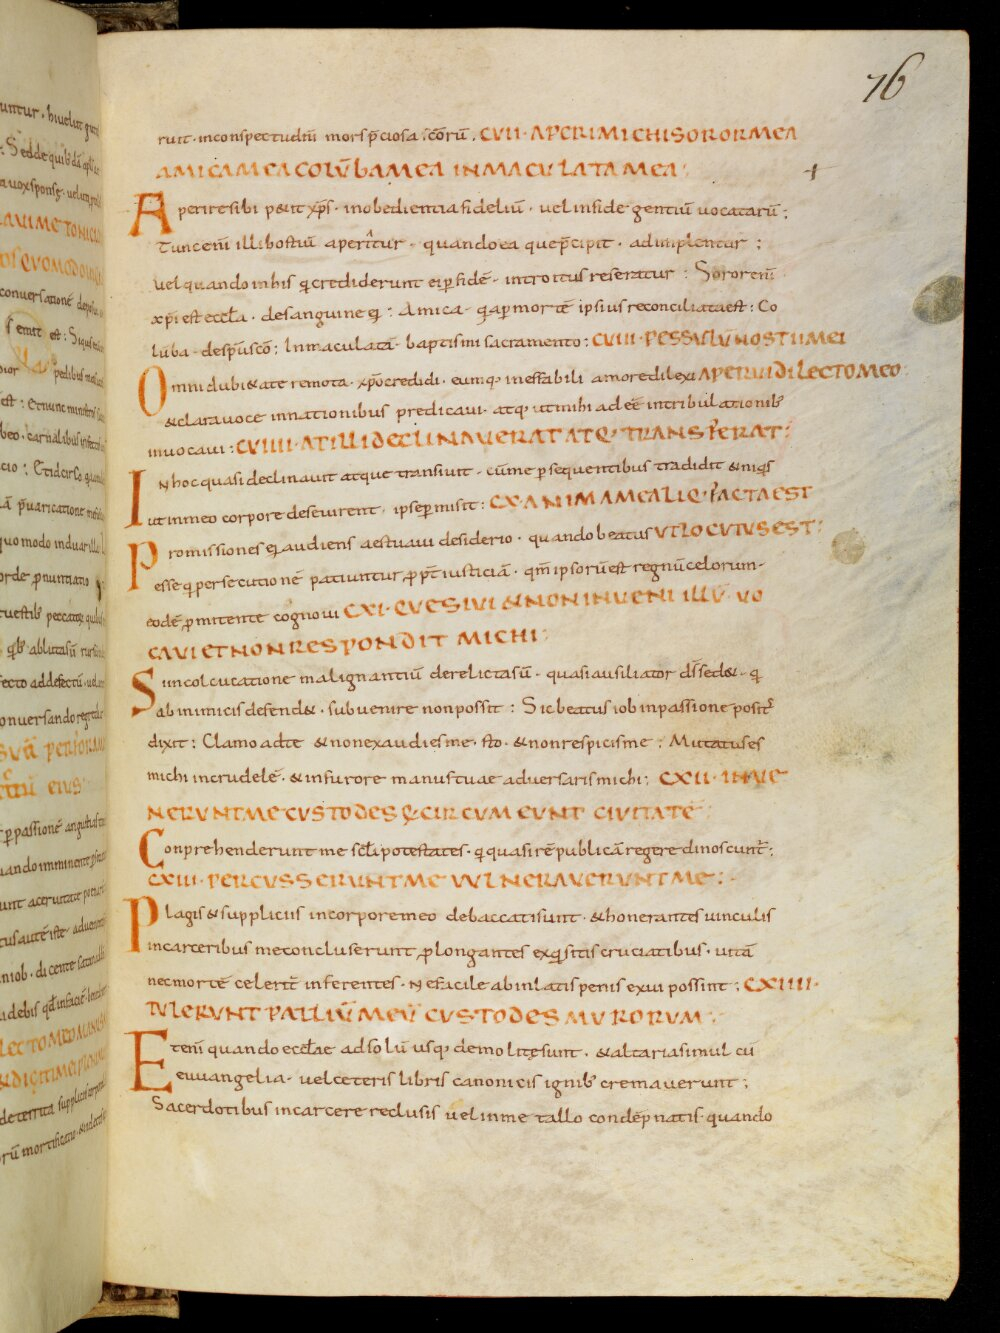 76
ruit · inconspectudn̄i mors p̄ciosa sc̄orū · CVII · APERI MICHI SOROR MEA
AMICA MEA COLŪBA MEA INMACULATA MEA :
Aperire sibi p&it xp̄s · inobedientia fideliū · vel infide gentiū vocatarū ;
Tuncen̄i illi hostiū aperitur · quando ea que p̄cipit · adimplentur ;
vel quando in his q crediderunt ei p fidē · introitus reseratur : Sororen̄i
xp̄i est eccl̄a · de sanguine ei : Amica · q ap mortē ipsius reconciliata est : Co
lūba · desp̄usc̄o ; Inmaculata · baptismi sacramento : CVIII · PESSULŪ NOSTII MEI
Omni dubi&ate remota · xp̄o credidi · eumq; ineffabili amore dilexi APERUI DILECTO MEO
& clara voce innationibus predicavi · atq; ut mihi adeē in tribulationib;
invocavi : CVIIII · AT ILLI DECLINAVERAT ATQ; TRANSIERAT :
In hoc quasi declinavit atque transivit · cū me psequentibus tradidit & iniqis
ut in meo corpore desevirent · ipse pmisit : CX · ANIMA MEA LIQ;FACTA EST
Promissiones ei audiens aestuavi desiderio · quando beatus UT LOCUTUS EST :
esse q persecutionē patiuntur pp̄t iusticiā · qm̄ ipsorū est regnū celorum ·
eodē pmitente cognovi CXI · QUESIVI & NON INVENI ILLŪ VO
CAVI ET NON RESPONDIT MICHI :
Si in colcucatione malignantiū derelictasū · quasi ausiliator ds̄ sed& · q
ab inimicis defend& · subvenire non possit : Sic beatus iob in passione posit᷒
dixit : Clamo ad te & non exaudies me · sto · & non respicis me ; Mutatus es
michi in crudelē · & in furore manus tuae adversaris michi ; CXII · INVE
NERUNT ME CUSTODES Q; CIRCUMEUNT CIVITATĒ
Conprehenderunt me scl̄i potestates · q quasi rē publicā regere dinoscunt᷒ ;
CXIII · PERCUSSERUNT ME VULNERAVERUNT ME : ·
Plagis & suppliciis in corpore meo debaccati sunt · & honerantes vinculis
incarceribus me concluserunt plongantes exqsitis cruciatibus · vitā
nec mortē celerit᷒ inferentes · ne facile ab inlatis penis exui possint ; CXIIII ·
TULERUNT PALLIŪ MEŪ CUSTODES MURORUM :
Eten̄i quando eccl̄ae ad solū usq; demolitesunt · & altaria simul cū
euvangelia · vel ceteris libris canonicis ignib; cremaverunt ;
Sacerdotibus in carcere reclusis vel in me tallo condēp natis · quando